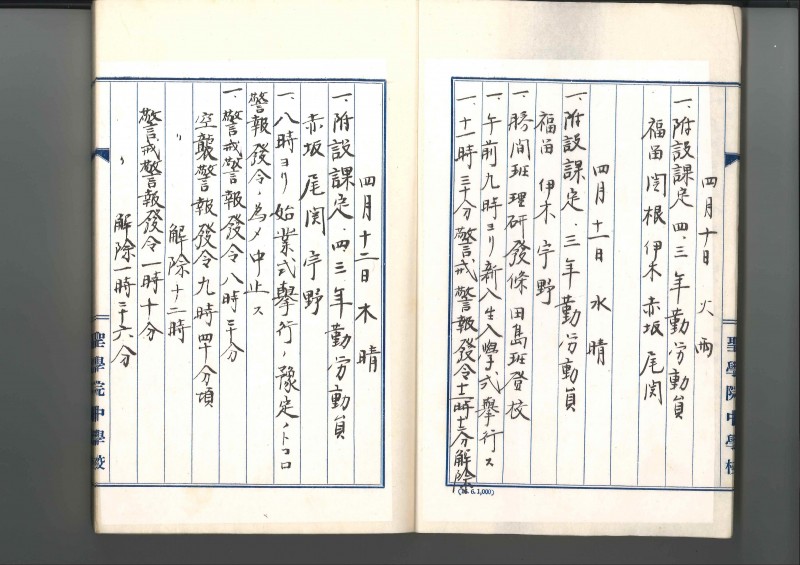 四月十日 火 雨
一、附設課定 四、三年勤労動員
福留 関根 伊木 赤坂 尾関
四月十一日 水 晴
一、附設課定、三年勤労動員
福留 伊木 宇野
一、勝間班理研發條 田島班登校
一、午前九時ヨリ新入生入學式擧行ス
一、十一時三十分警戒警報發令十二時十三分解除
聖學院中學校
(16. 6. 1,000)
四月十二日 木 晴
一、附設課定、四、三年勤労動員
赤坂 尾関 宇野
一、八時ヨリ始業式擧行ノ豫定ノトコロ
警報發令ノ為メ中止ス
一、警戒警報發令八時三十分
空襲警報發令九時四十分頃
〃 解除十二時
警戒警報發令一時十分
〃 解除一時三十六分
聖學院中學校